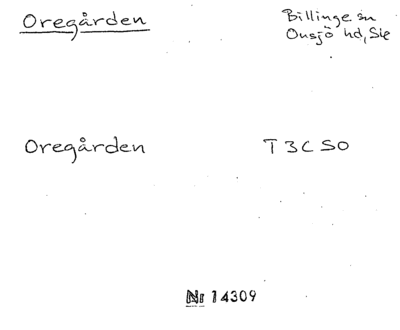 Oregården
Billinge sn
Onsjö hd, Ske
Oregården
T 3 C SO
Nr 14309